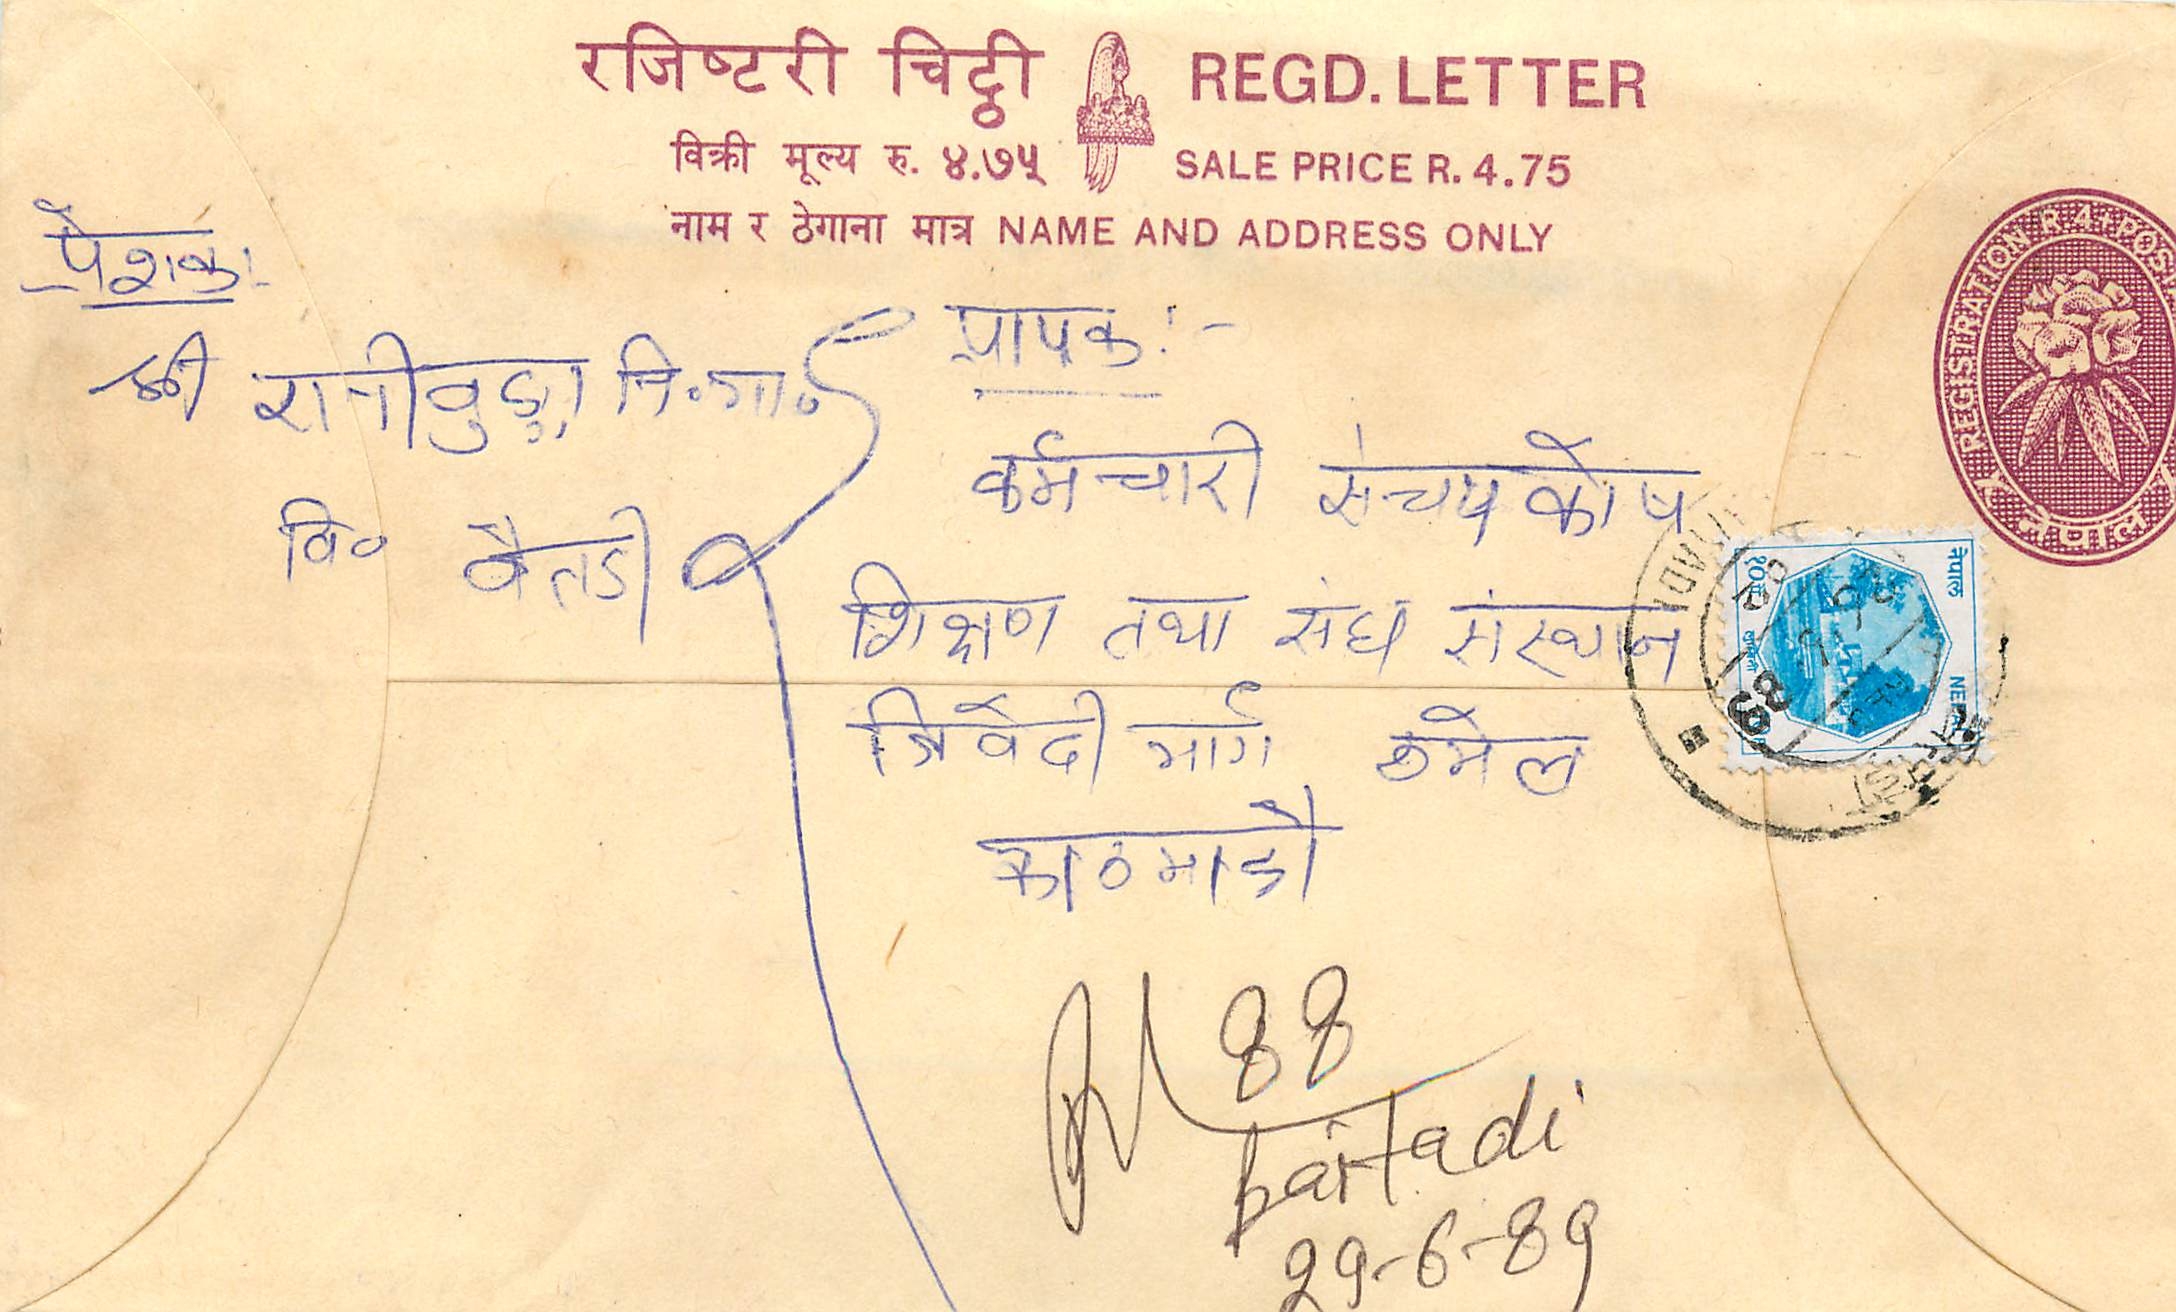 रजिष्टरी चिट्ठी REGD. LETTER
विक्री मूल्य रु. ४.७५ SALE PRICE R. 4.75
नाम र ठेगाना मात्र NAME AND ADDRESS ONLY
REGISTRATION R.4+POST
नेपाल
पेशक:
श्री
वि० वैतडी
प्रापक:-
कर्मचारी संचयकोष
शिक्षण तथा संघ संस्थान
त्रिवेदी मार्ग ठमेल
काठमाडौ
नेपाल
NEPAL
88
baitadi
29-6-89